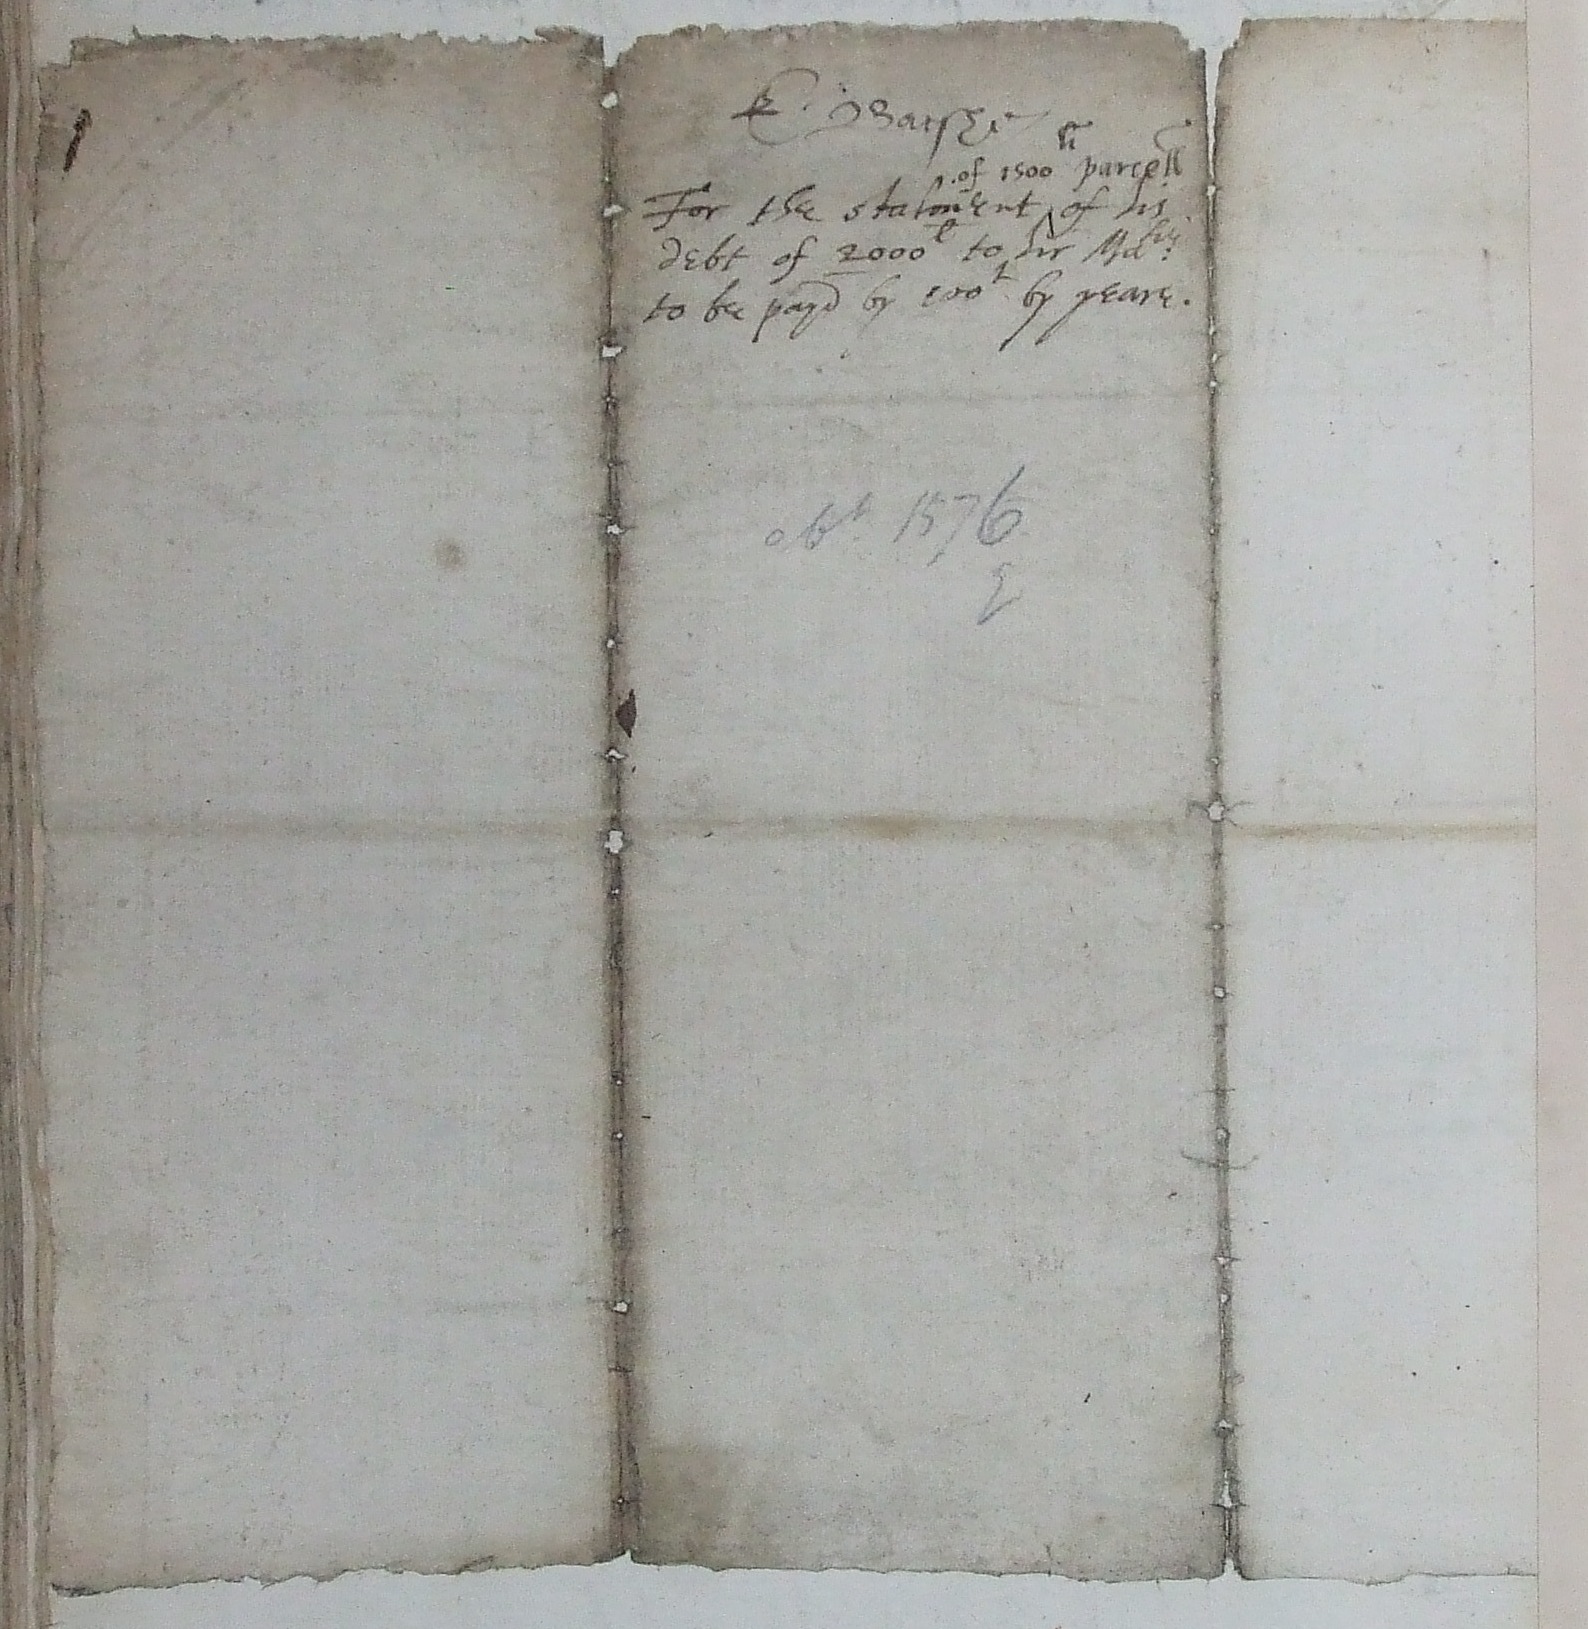 E. Baeshe
of 1500li parcell
For the stalment ^ of his
debt of 2000l to hir Matie
to bee payd by 100l by yeare.
obt 1576